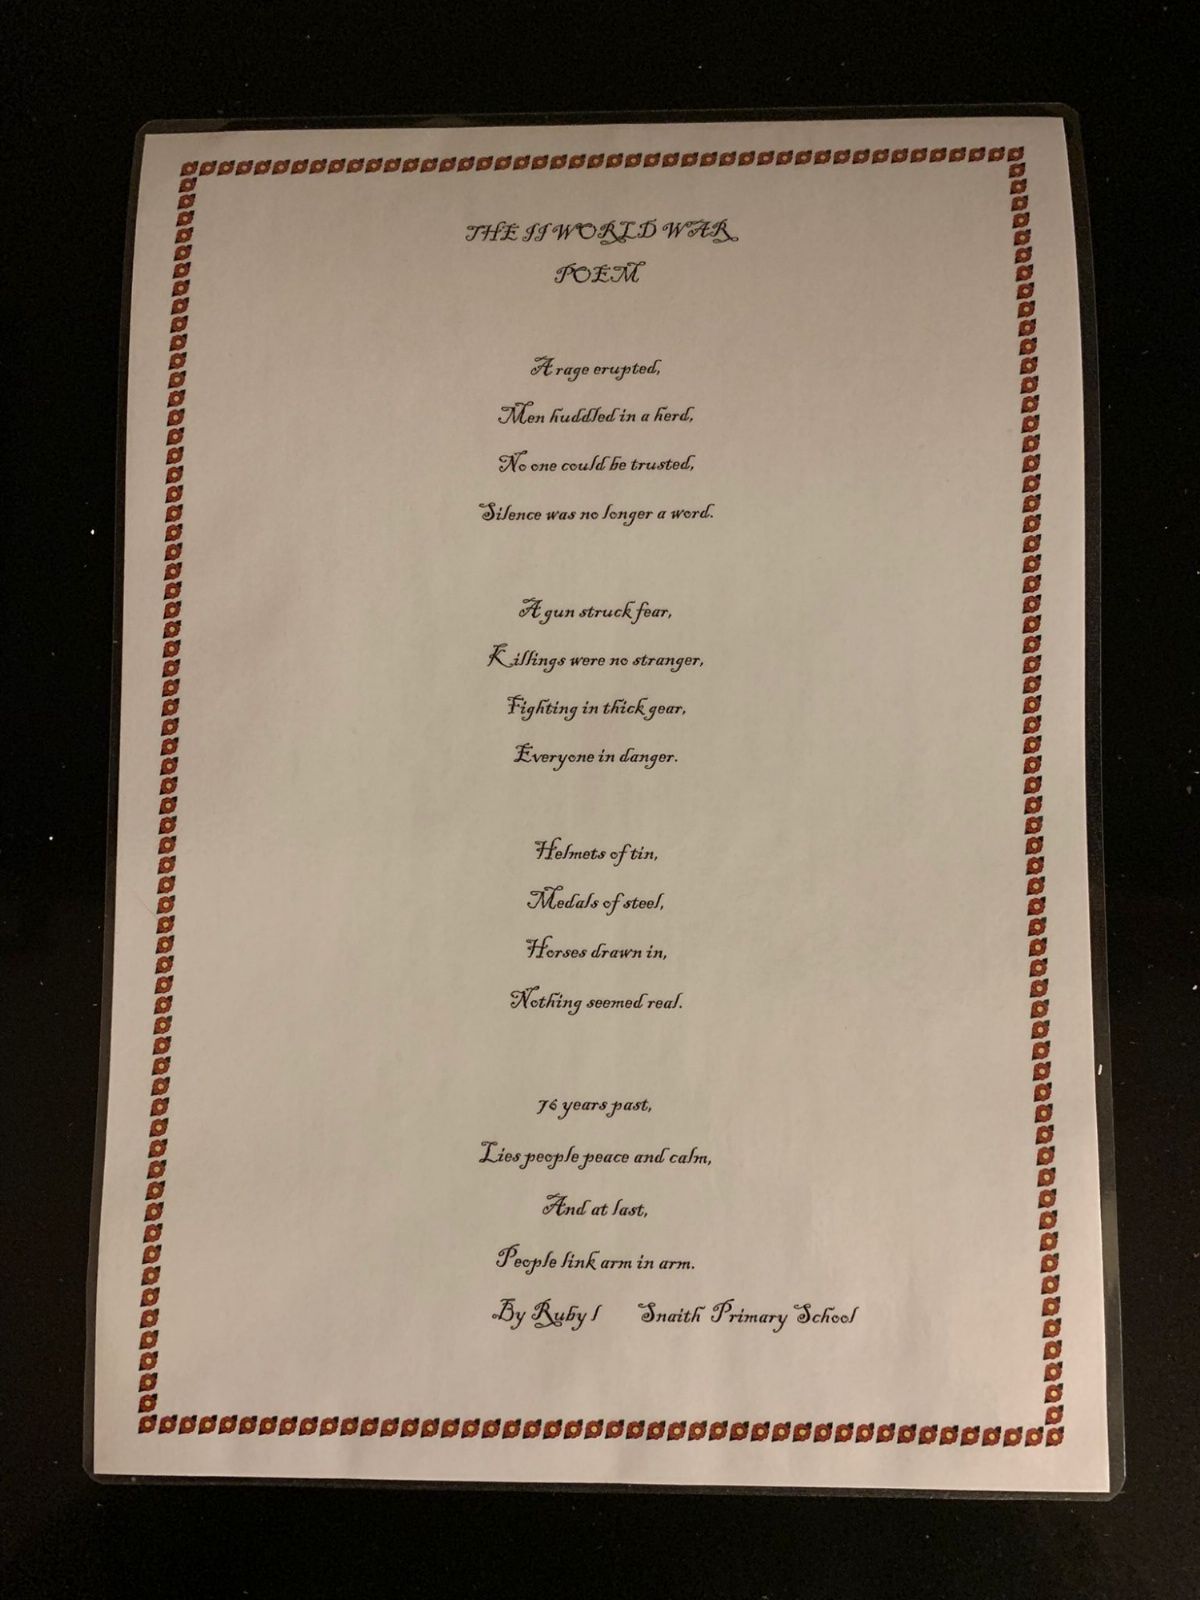 THE II WORLD WAR
POEM
A rage erupted,
Men huddled in a herd,
No one could be trusted,
Silence was no longer a word.
A gun struck fear,
Killings were no stranger,
Fighting in thick gear,
Everyone in danger.
Helmets of tin,
Medals of steel,
Horses drawn in,
Nothing seemed real.
76 years past,
Lies people peace and calm,
And at last,
People link arm in arm.
By Ruby l Snaith Primary School